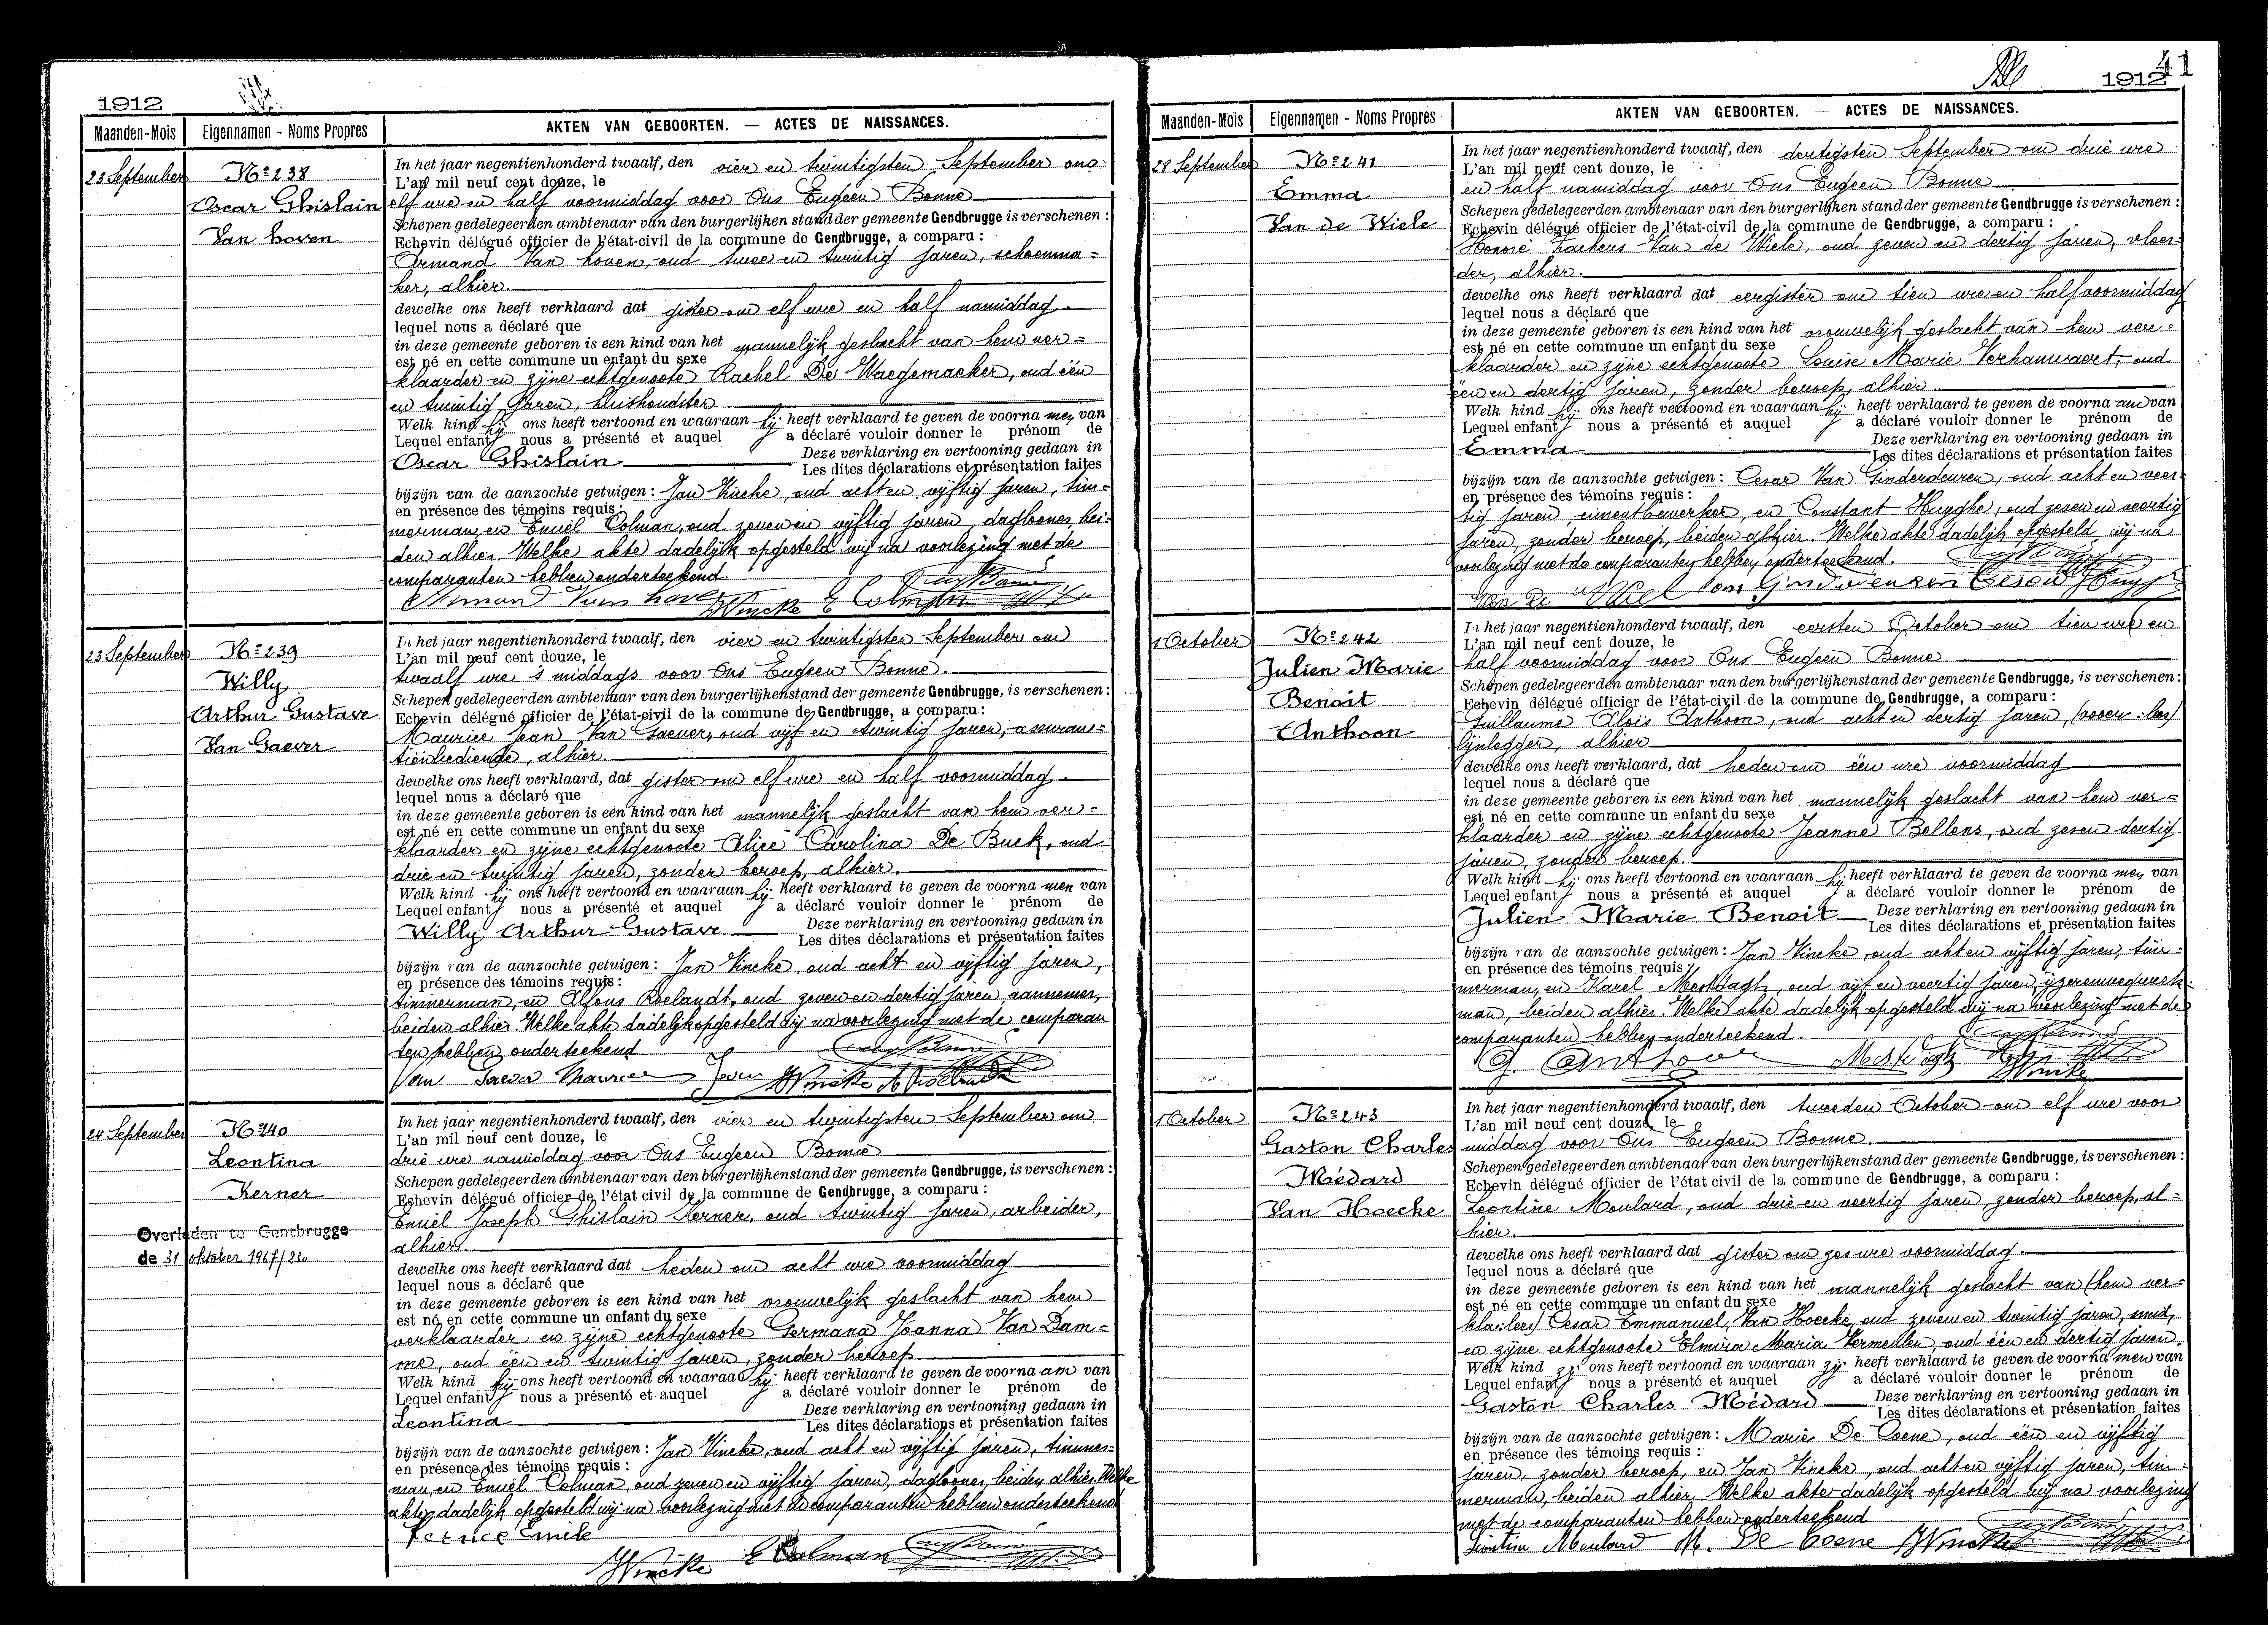 1912
Maanden-Mois Eigennamen - Noms Propres AKTEN VAN GEBOORTEN. — ACTES DE NAISSANCES.
23 September Nº 238
Oscar Ghislain
Van hoven
In het jaar negentienhonderd twaalf, den vier en twintigsten September om
L'an mil neuf cent douze, le
elf ure en half voormiddag voor Ons Eugeen Bonne
Schepen gedelegeerden ambtenaar van den burgerlijken stand der gemeente Gendbrugge is verschenen :
Echevin délégué officier de l'état-civil de la commune de Gendbrugge, a comparu :
Armand Van hoven, oud twee en twintig jaren, schoenma=
ker, alhier.
dewelke ons heeft verklaard dat gister om elf ure en half namiddag
lequel nous a déclaré que
in deze gemeente geboren is een kind van het mannelijk geslacht van hem ver=
est né en cette commune un enfant du sexe
klaarder en zijne echtgenoote Rachel De Waegemaeker, oud één
en twintig jaren, huishoudster
Welk kind hij ons heeft vertoond en waaraan hij heeft verklaard te geven de voorna men van
Lequel enfant nous a présenté et auquel a déclaré vouloir donner le prénom de
Oscar Ghislain Deze verklaring en vertooning gedaan in
Les dites déclarations et présentation faites
bijzijn van de aanzochte getuigen : Jan Vincke, oud acht en vijftig jaren, tim=
en présence des témoins requis :
merman, en Emiel Colman, oud zeven en vijftig jaren, daglooner, bei=
den alhier. Welke akte dadelijk opgesteld wij na voorlezing met de
comparanten hebben onderteekend.
Armand Van hoven JVincke E Colman
23 September Nº 239
Willy
Arthur Gustave
Van Gaever
In het jaar negentienhonderd twaalf, den vier en twintigsten September om
L'an mil neuf cent douze, le
twaalf ure 's middags voor Ons Eugeen Bonne.
Schepen gedelegeerden ambtenaar van den burgerlijkenstand der gemeente Gendbrugge, is verschenen :
Echevin délégué officier de l'état-civil de la commune de Gendbrugge, a comparu :
Maurice Jean Van Gaever, oud vijf en twintig jaren, assuran=
tiënbediende, alhier.
dewelke ons heeft verklaard, dat gister om elf ure en half voormiddag
lequel nous a déclaré que
in deze gemeente geboren is een kind van het mannelijk geslacht van hem ver=
est né en cette commune un enfant du sexe
klaarder en zijne echtgenoote Alice Carolina De Buck, oud
drie en twintig jaren, zonder beroep, alhier.
Welk kind hij ons heeft vertoond en waaraan hij heeft verklaard te geven de voorna men van
Lequel enfant nous a présenté et auquel a déclaré vouloir donner le prénom de
Willy Arthur Gustave Deze verklaring en vertooning gedaan in
Les dites déclarations et présentation faites
bijzijn van de aanzochte getuigen : Jan Vincke, oud acht en vijftig jaren,
en présence des témoins requis :
timmerman, en Alfons Roelandt, oud zeven en dertig jaren, aannemer,
beiden alhier. Welke akte dadelijk opgesteld wij na voorlezing met de comparan
ten hebben onderteekend
Van Gaever Maurice Jean JVincke A Roelandt
24 September Nº 240
Leontina
Kerner
Overleden te Gentbrugge
de 31 oktober 1967/230
In het jaar negentienhonderd twaalf, den vier en twintigsten September om
L'an mil neuf cent douze, le
drie ure namiddag voor Ons Eugeen Bonne
Schepen gedelegeerden ambtenaar van den burgerlijkenstand der gemeente Gendbrugge, is verschenen :
Echevin délégué officier de l'état civil de la commune de Gendbrugge, a comparu :
Emiel Joseph Ghislain Kerner, oud twintig jaren, arbeider,
alhier.
dewelke ons heeft verklaard dat heden om acht ure voormiddag
lequel nous a déclaré que
in deze gemeente geboren is een kind van het vrouwelijk geslacht van hem
est né en cette commune un enfant du sexe
verklaarder en zijne echtgenoote Germana Joanna Van Dam=
me, oud één en twintig jaren, zonder beroep
Welk kind hij ons heeft vertoond en waaraan hij heeft verklaard te geven de voorna am van
Lequel enfant nous a présenté et auquel a déclaré vouloir donner le prénom de
Leontina Deze verklaring en vertooning gedaan in
Les dites déclarations et présentation faites
bijzijn van de aanzochte getuigen : Jan Vincke, oud acht en vijftig jaren, timmer=
en présence des témoins requis :
man, en Emiel Colman, oud zeven en vijftig jaren, daglooner, beiden alhier. Welke
akte dadelijk opgesteld wij na voorlezing met de comparanten hebben onderteekend
Emiele
JVincke E Colman
41
1912
Maanden-Mois Eigennamen - Noms Propres AKTEN VAN GEBOORTEN. — ACTES DE NAISSANCES.
28 September Nº 241
Emma
Van de Wiele
In het jaar negentienhonderd twaalf, den dertigsten September om drie ure
L'an mil neuf cent douze, le
en half namiddag voor Ons Eugeen Bonne
Schepen gedelegeerden ambtenaar van den burgerlijken stand der gemeente Gendbrugge is verschenen :
Echevin délégué officier de l'état-civil de la commune de Gendbrugge, a comparu :
Honoré Zacheus Van de Wiele, oud zeven en dertig jaren, vloer=
der, alhier.
dewelke ons heeft verklaard dat eergister om tien ure en half voormiddag
lequel nous a déclaré que
in deze gemeente geboren is een kind van het vrouwelijk geslacht van hem ver=
est né en cette commune un enfant du sexe
klaarder en zijne echtgenoote Louise Marie Verhauwaert, oud
één en dertig jaren, zonder beroep, alhier.
Welk kind hij ons heeft vertoond en waaraan hij heeft verklaard te geven de voorna am van
Lequel enfant nous a présenté et auquel a déclaré vouloir donner le prénom de
Emma Deze verklaring en vertooning gedaan in
Les dites déclarations et présentation faites
bijzijn van de aanzochte getuigen : Cesar Van Ginderdeuren, oud acht en veer=
en présence des témoins requis :
tig jaren cimentbewerker, en Constant Huyghe, oud zes en veertig
jaren, zonder beroep, beiden alhier. Welke akte dadelijk opgesteld wij na
voorlezing met de comparanten hebben onderteekend.
Van De Wiel Van Ginderdeuren Cesar Huyghe
1 October Nº 242
Julien Marie
Benoit
Anthoon
In het jaar negentienhonderd twaalf, den eersten October om tien ure en
L'an mil neuf cent douze, le
half voormiddag voor Ons Eugeen Bonne
Schepen gedelegeerden ambtenaar van den burgerlijkenstand der gemeente Gendbrugge, is verschenen :
Echevin délégué officier de l'état-civil de la commune de Gendbrugge, a comparu :
Guillaume Alois Anthoon, oud acht en dertig jaren,
lijnlegger, alhier
dewelke ons heeft verklaard, dat heden om één ure voormiddag
lequel nous a déclaré que
in deze gemeente geboren is een kind van het mannelijk geslacht van hem ver=
est né en cette commune un enfant du sexe
klaarder en zijne echtgenoote Jeanne Bellens, oud zes en dertig
jaren, zonder beroep.
Welk kind hij ons heeft vertoond en waaraan hij heeft verklaard te geven de voorna men van
Lequel enfant nous a présenté et auquel a déclaré vouloir donner le prénom de
Julien Marie Benoit Deze verklaring en vertooning gedaan in
Les dites déclarations et présentation faites
bijzijn van de aanzochte getuigen : Jan Vincke, oud acht en vijftig jaren, tim=
en présence des témoins requis :
merman, en Karel Mestdagh, oud vijf en veertig jaren, ijzerenwegwerk=
man, beiden alhier. Welke akte dadelijk opgesteld wij na voorlezing met de
comparanten hebben onderteekend.
G. Anthoon Mestdagh JVincke
1 October Nº 243
Gaston Charles
Médard
Van Hoecke
In het jaar negentienhonderd twaalf, den tweeden October om elf ure voor
L'an mil neuf cent douze, le
middag voor Ons Eugeen Bonne.
Schepen gedelegeerden ambtenaar van den burgerlijkenstand der gemeente Gendbrugge, is verschenen :
Echevin délégué officier de l'état civil de la commune de Gendbrugge, a comparu :
Leontine Moulard, oud drie en veertig jaren, zonder beroep, al=
hier.
dewelke ons heeft verklaard dat gister om zes ure voormiddag.
lequel nous a déclaré que
in deze gemeente geboren is een kind van het mannelijk geslacht van (hem ver=
est né en cette commune un enfant du sexe
klar: lees) Cesar Emmanuel Van Hoecke, oud zeven en twintig jaren, smid,
en zijne echtgenoote Elmira Maria Vermeulen, oud één en dertig jaren.
Welk kind zij ons heeft vertoond en waaraan zij heeft verklaard te geven de voorna men van
Lequel enfant nous a présenté et auquel a déclaré vouloir donner le prénom de
Gaston Charles Médard Deze verklaring en vertooning gedaan in
Les dites déclarations et présentation faites
bijzijn van de aanzochte getuigen : Marie De Coene, oud één en vijftig
en présence des témoins requis :
jaren, zonder beroep, en Jan Vincke, oud acht en vijftig jaren, tim=
merman, beiden alhier. Welke akte dadelijk opgesteld wij na voorlezing
met de comparanten hebben onderteekend
Leontine Moulard M. De Coene JVincke